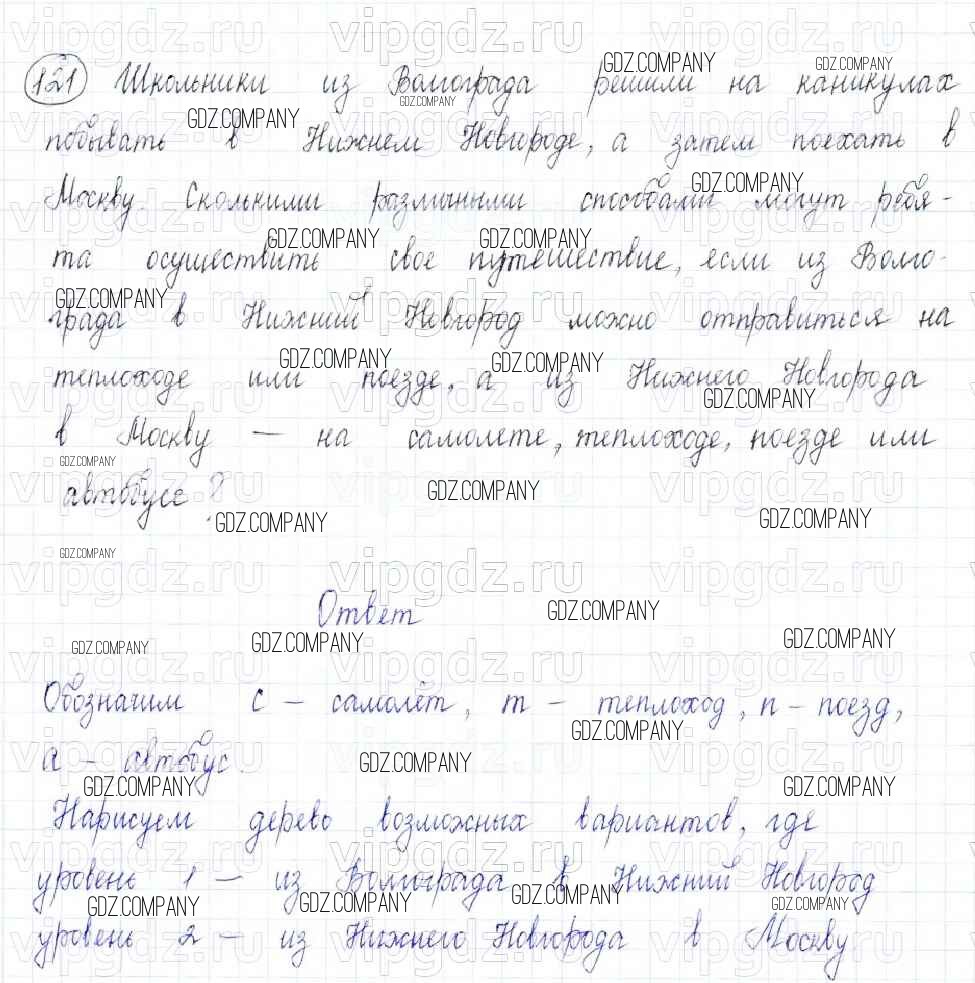 121 Школьники из Волгограда решили на каникулах
побывать в Нижнем Новгороде, а затем поехать в
Москву. Сколькими различными способами могут ребя-
та осуществить свое путешествие, если из Волго-
града в Нижний Новгород можно отправиться на
теплоходе или поезде, а из Нижнего Новгорода
в Москву — на самолете, теплоходе, поезде или
автобусе?
Ответ
Обозначим с – самолёт, т – теплоход, п – поезд,
а – автобус.
Нарисуем дерево возможных вариантов, где
уровень 1 – из Волгограда в Нижний Новгород
уровень 2 – из Нижнего Новгорода в Москву.
vipgdz.ru
GDZ.COMPANY